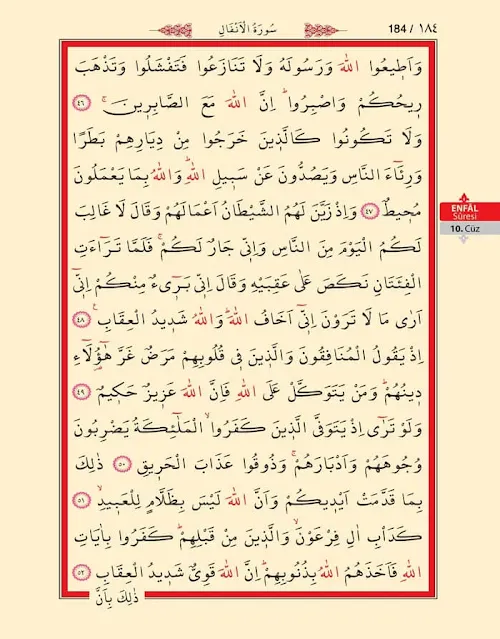 سُورَةُ الْاَنْفَالِ
184 / ١٨٤
وَاَط۪يعُوا اللّٰهَ وَرَسُولَهُ وَلَا تَنَازَعُوا فَتَفْشَلُوا وَتَذْهَبَ
ر۪يحُكُمْ وَاصْبِرُواۜ اِنَّ اللّٰهَ مَعَ الصَّابِر۪ينَۚ ٤٦
وَلَا تَكُونُوا كَالَّذ۪ينَ خَرَجُوا مِنْ دِيَارِهِمْ بَطَرًا
وَرِئَٓاءَ النَّاسِ وَيَصُدُّونَ عَنْ سَب۪يلِ اللّٰهِۜ وَاللّٰهُ بِمَا يَعْمَلُونَ
مُح۪يطٌ ٤٧ وَاِذْ زَيَّنَ لَهُمُ الشَّيْطَانُ اَعْمَالَهُمْ وَقَالَ لَا غَالِبَ
لَكُمُ الْيَوْمَ مِنَ النَّاسِ وَاِنّ۪ي جَارٌ لَكُمْۚ فَلَمَّا تَرَٓاءَتِ
الْفِئَتَانِ نَكَصَ عَلٰى عَقِبَيْهِ وَقَالَ اِنّ۪ي بَر۪ٓيءٌ مِنْكُمْ اِنّ۪ٓي
اَرٰى مَا لَا تَرَوْنَ اِنّ۪ٓي اَخَافُ اللّٰهَۜ وَاللّٰهُ شَد۪يدُ الْعِقَابِ۟ ٤٨
اِذْ يَقُولُ الْمُنَافِقُونَ وَالَّذ۪ينَ ف۪ي قُلُوبِهِمْ مَرَضٌ غَرَّ هٰٓؤُ۬لَٓاءِ
د۪ينُهُمْۜ وَمَنْ يَتَوَكَّلْ عَلَى اللّٰهِ فَاِنَّ اللّٰهَ عَز۪يزٌ حَك۪يمٌ ٤٩
وَلَوْ تَرٰٓى اِذْ يَتَوَفَّى الَّذ۪ينَ كَفَرُواۙ الْمَلٰٓئِكَةُ يَضْرِبُونَ
وُجُوهَهُمْ وَاَدْبَارَهُمْۚ وَذُوقُوا عَذَابَ الْحَر۪يقِ ٥٠ ذٰلِكَ
بِمَا قَدَّمَتْ اَيْد۪يكُمْ وَاَنَّ اللّٰهَ لَيْسَ بِظَلَّامٍ لِلْعَب۪يدِۙ ٥١
كَدَاْبِ اٰلِ فِرْعَوْنَۙ وَالَّذ۪ينَ مِنْ قَبْلِهِمْۜ كَفَرُوا بِاٰيَاتِ
اللّٰهِ فَاَخَذَهُمُ اللّٰهُ بِذُنُوبِهِمْۜ اِنَّ اللّٰهَ قَوِيٌّ شَد۪يدُ الْعِقَابِ ٥٢
ذٰلِكَ بِاَنَّ
ENFÂL
Sûresi
10. Cüz